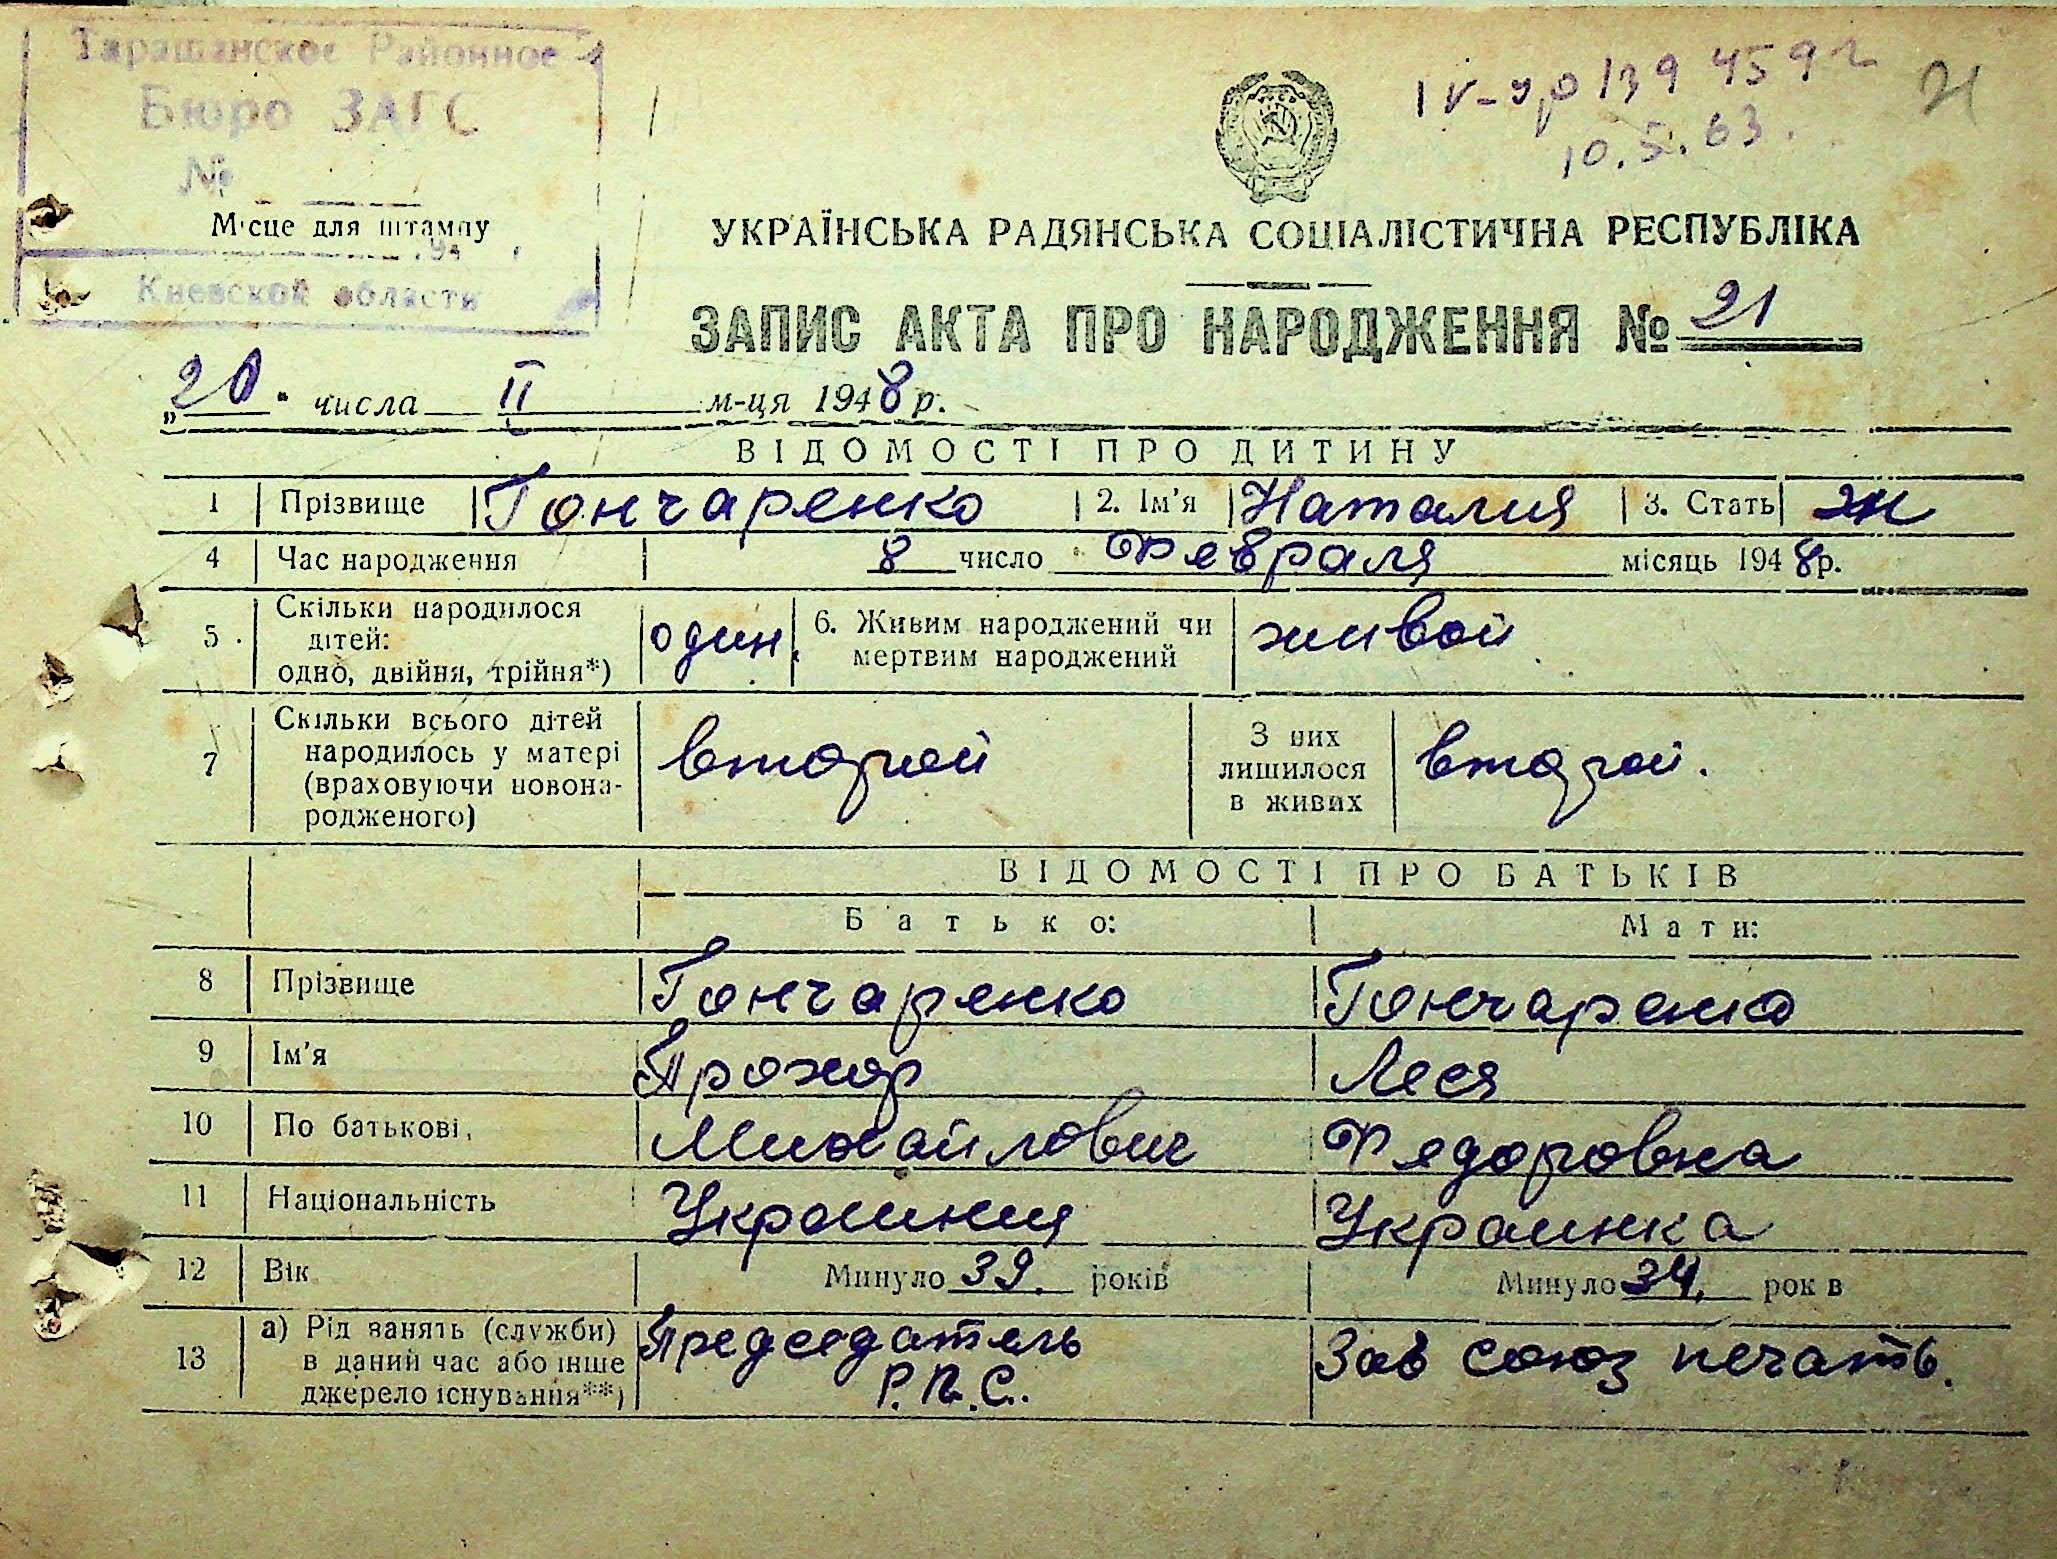 Таращанское Районное
Бюро ЗАГС
№
Місце для штампу
Киевской области
IV-ур 139 459 г
10.5.63.
21
УКРАЇНСЬКА РАДЯНСЬКА СОЦІАЛІСТИЧНА РЕСПУБЛІКА
ЗАПИС АКТА ПРО НАРОДЖЕННЯ № 21
„20“ числа II м-ця 1948 р.
ВІДОМОСТІ ПРО ДИТИНУ
1 Прізвище Гончаренко 2. Ім'я Наталия 3. Стать ж
4 Час народження 8 число Февраля місяць 1948 р.
5 Скільки народилося дітей: одно, двійня, трійня*) один 6. Живим народжений чи мертвим народжений живой
7 Скільки всього дітей народилось у матері (враховуючи новонародженого) второй З них лишилося в живих второй.
ВІДОМОСТІ ПРО БАТЬКІВ
Батько: Мати:
8 Прізвище Гончаренко Гончаренко
9 Ім'я Прохор Леся
10 По батькові Михайлович Федоровна
11 Національність Украинец Украинка
12 Вік Минуло 39. років Минуло 34. років
13 а) Рід занять (служби) в даний час або інше джерело існування**) Председатель Р.П.С. Зав союз печать.